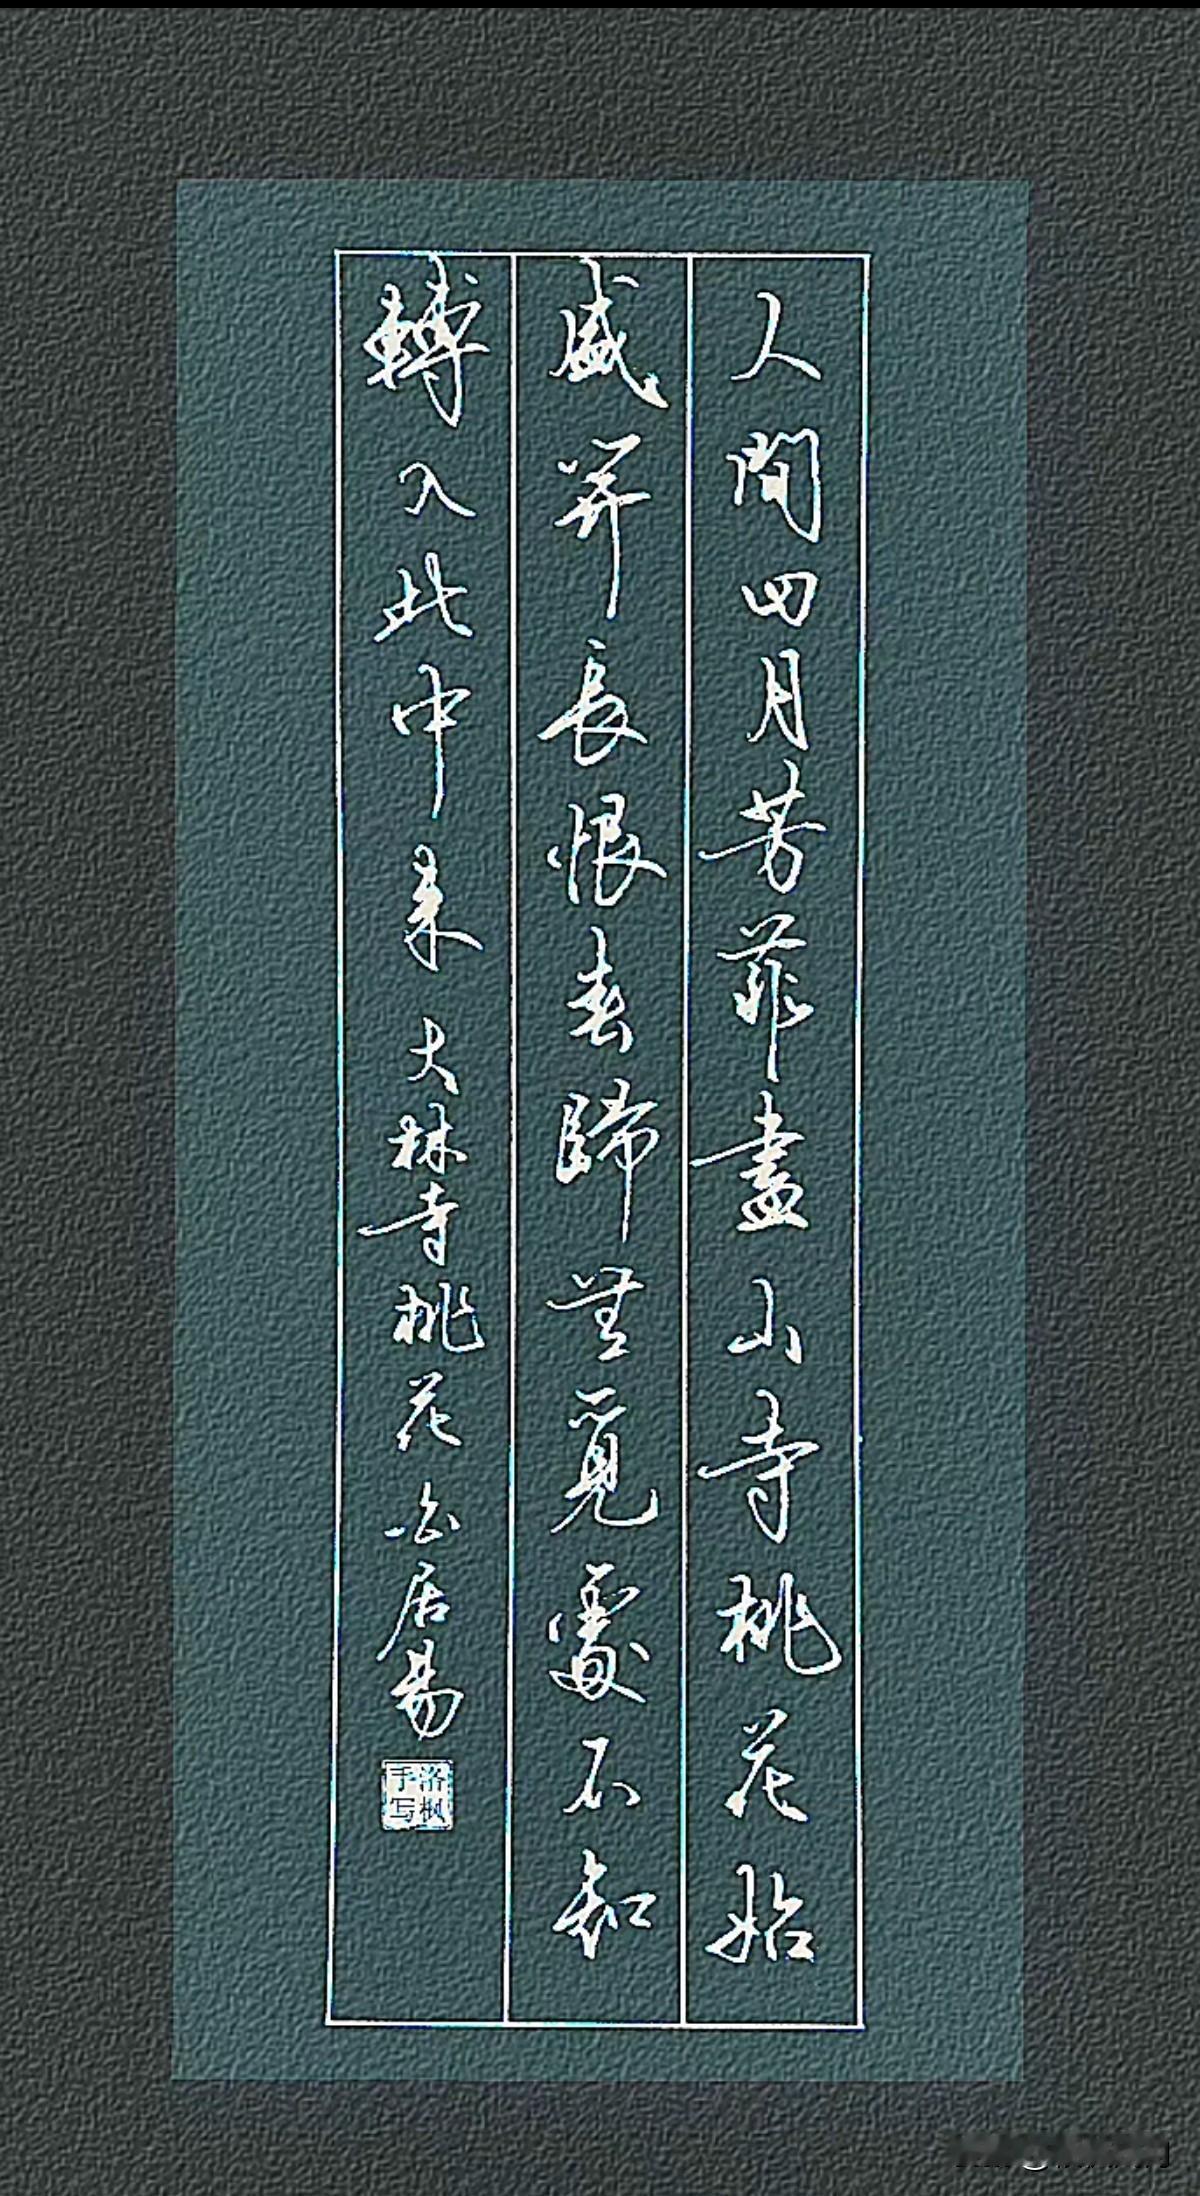 人間四月芳菲盡山寺桃花始
盛開長恨春歸無覓處不知
轉入此中来 大林寺桃花 白居易
洛枫
手写